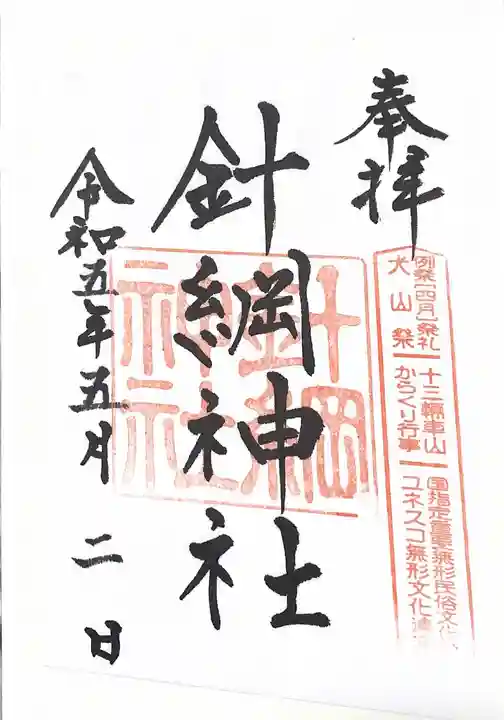 奉拝
例祭[四月]祭礼
犬山祭
十三輛車山
からくり行事
国指定重要無形民俗文化
ユネスコ無形文化遺
針綱神社
針綱
神社
令和五年五月二日